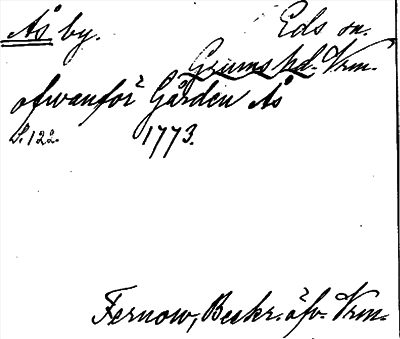 Ås by. Eds sn.
Grums hd. Vrm.
ofwanför Gården Ås
S. 122. 1773.
Fernow, Beskr. öfv. Vrm.